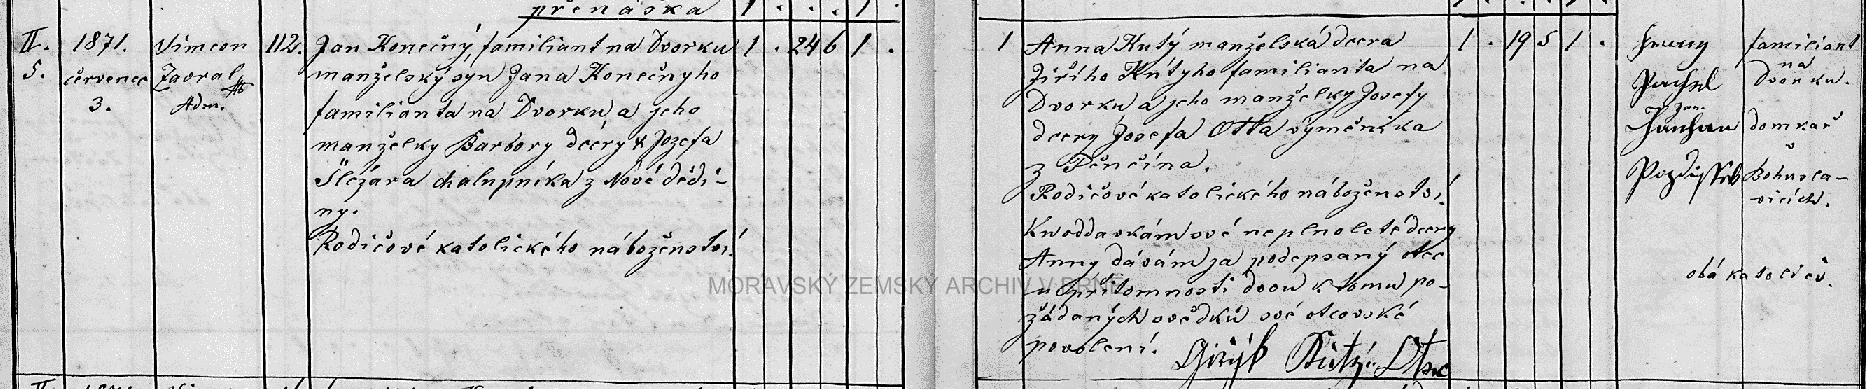 přenáška 1 . . . 1 .
II. 5.
1871.
července
3.
Simeon
Zavral
Adm.
112.
Jan Konečný, familiant na Dvorku 1 . 24 6 1 .
manželský syn Jana Konečnyho
familianta na Dvorku a jeho
manželky Barbory dcéry Jozefa
Šlézara chalupníka z Nové dědi-
ny.
Rodičové katolického náboženství.
1 Anna Kutý manželská dcera 1 . 19 5 1 .
Jiřího Kútyho familianta na
Dvorku a jeho manželky Josefy
dcery Josefa Otta výměnkka
z Těnčína.
Rodičové katolického náboženství.
K woddavkám své neplnoleté dcery
Anny dávám já podepsaný otec
u přítomnosti dvou k tomu po-
žádaných svědků své otcovské
povolení.
familiant
na
Dvorku.
Jan
domkař
v Bohusla-
vicích.
obá katolíci.
MORAVSKÝ ZEMSKÝ ARCHIV V BRNĚ